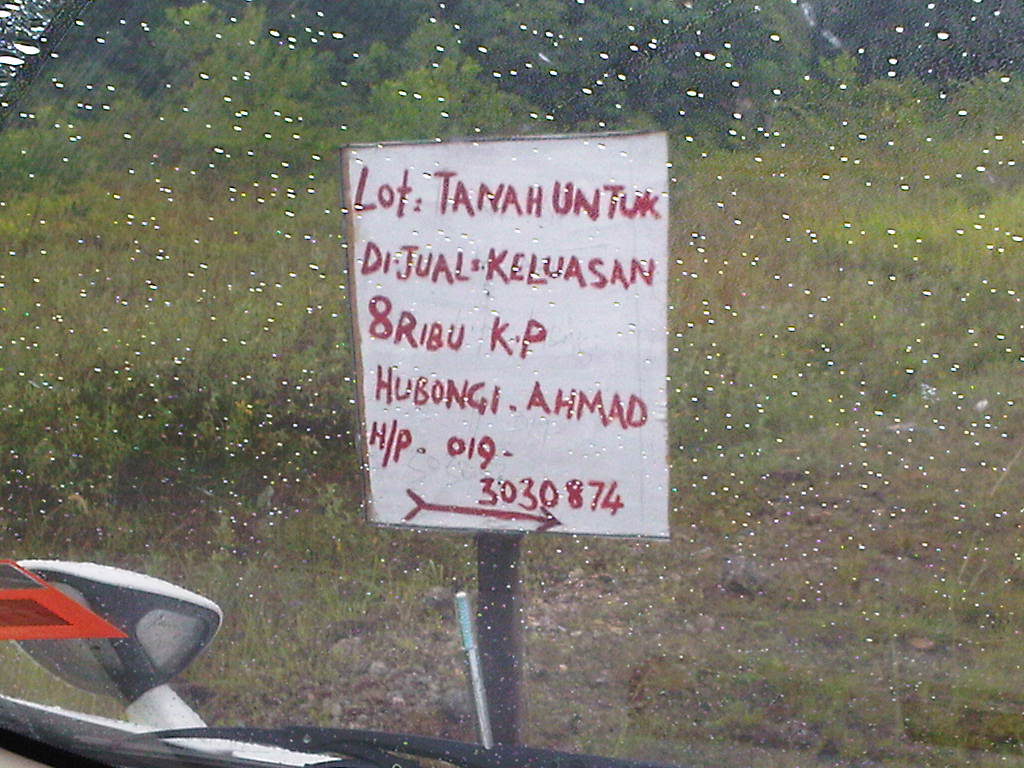 Lot: TANAH UNTUK
DI-JUAL: KELUASAN
8 RIBU K.P
HUBONGI. AHMAD
H/P. 019-
3030874